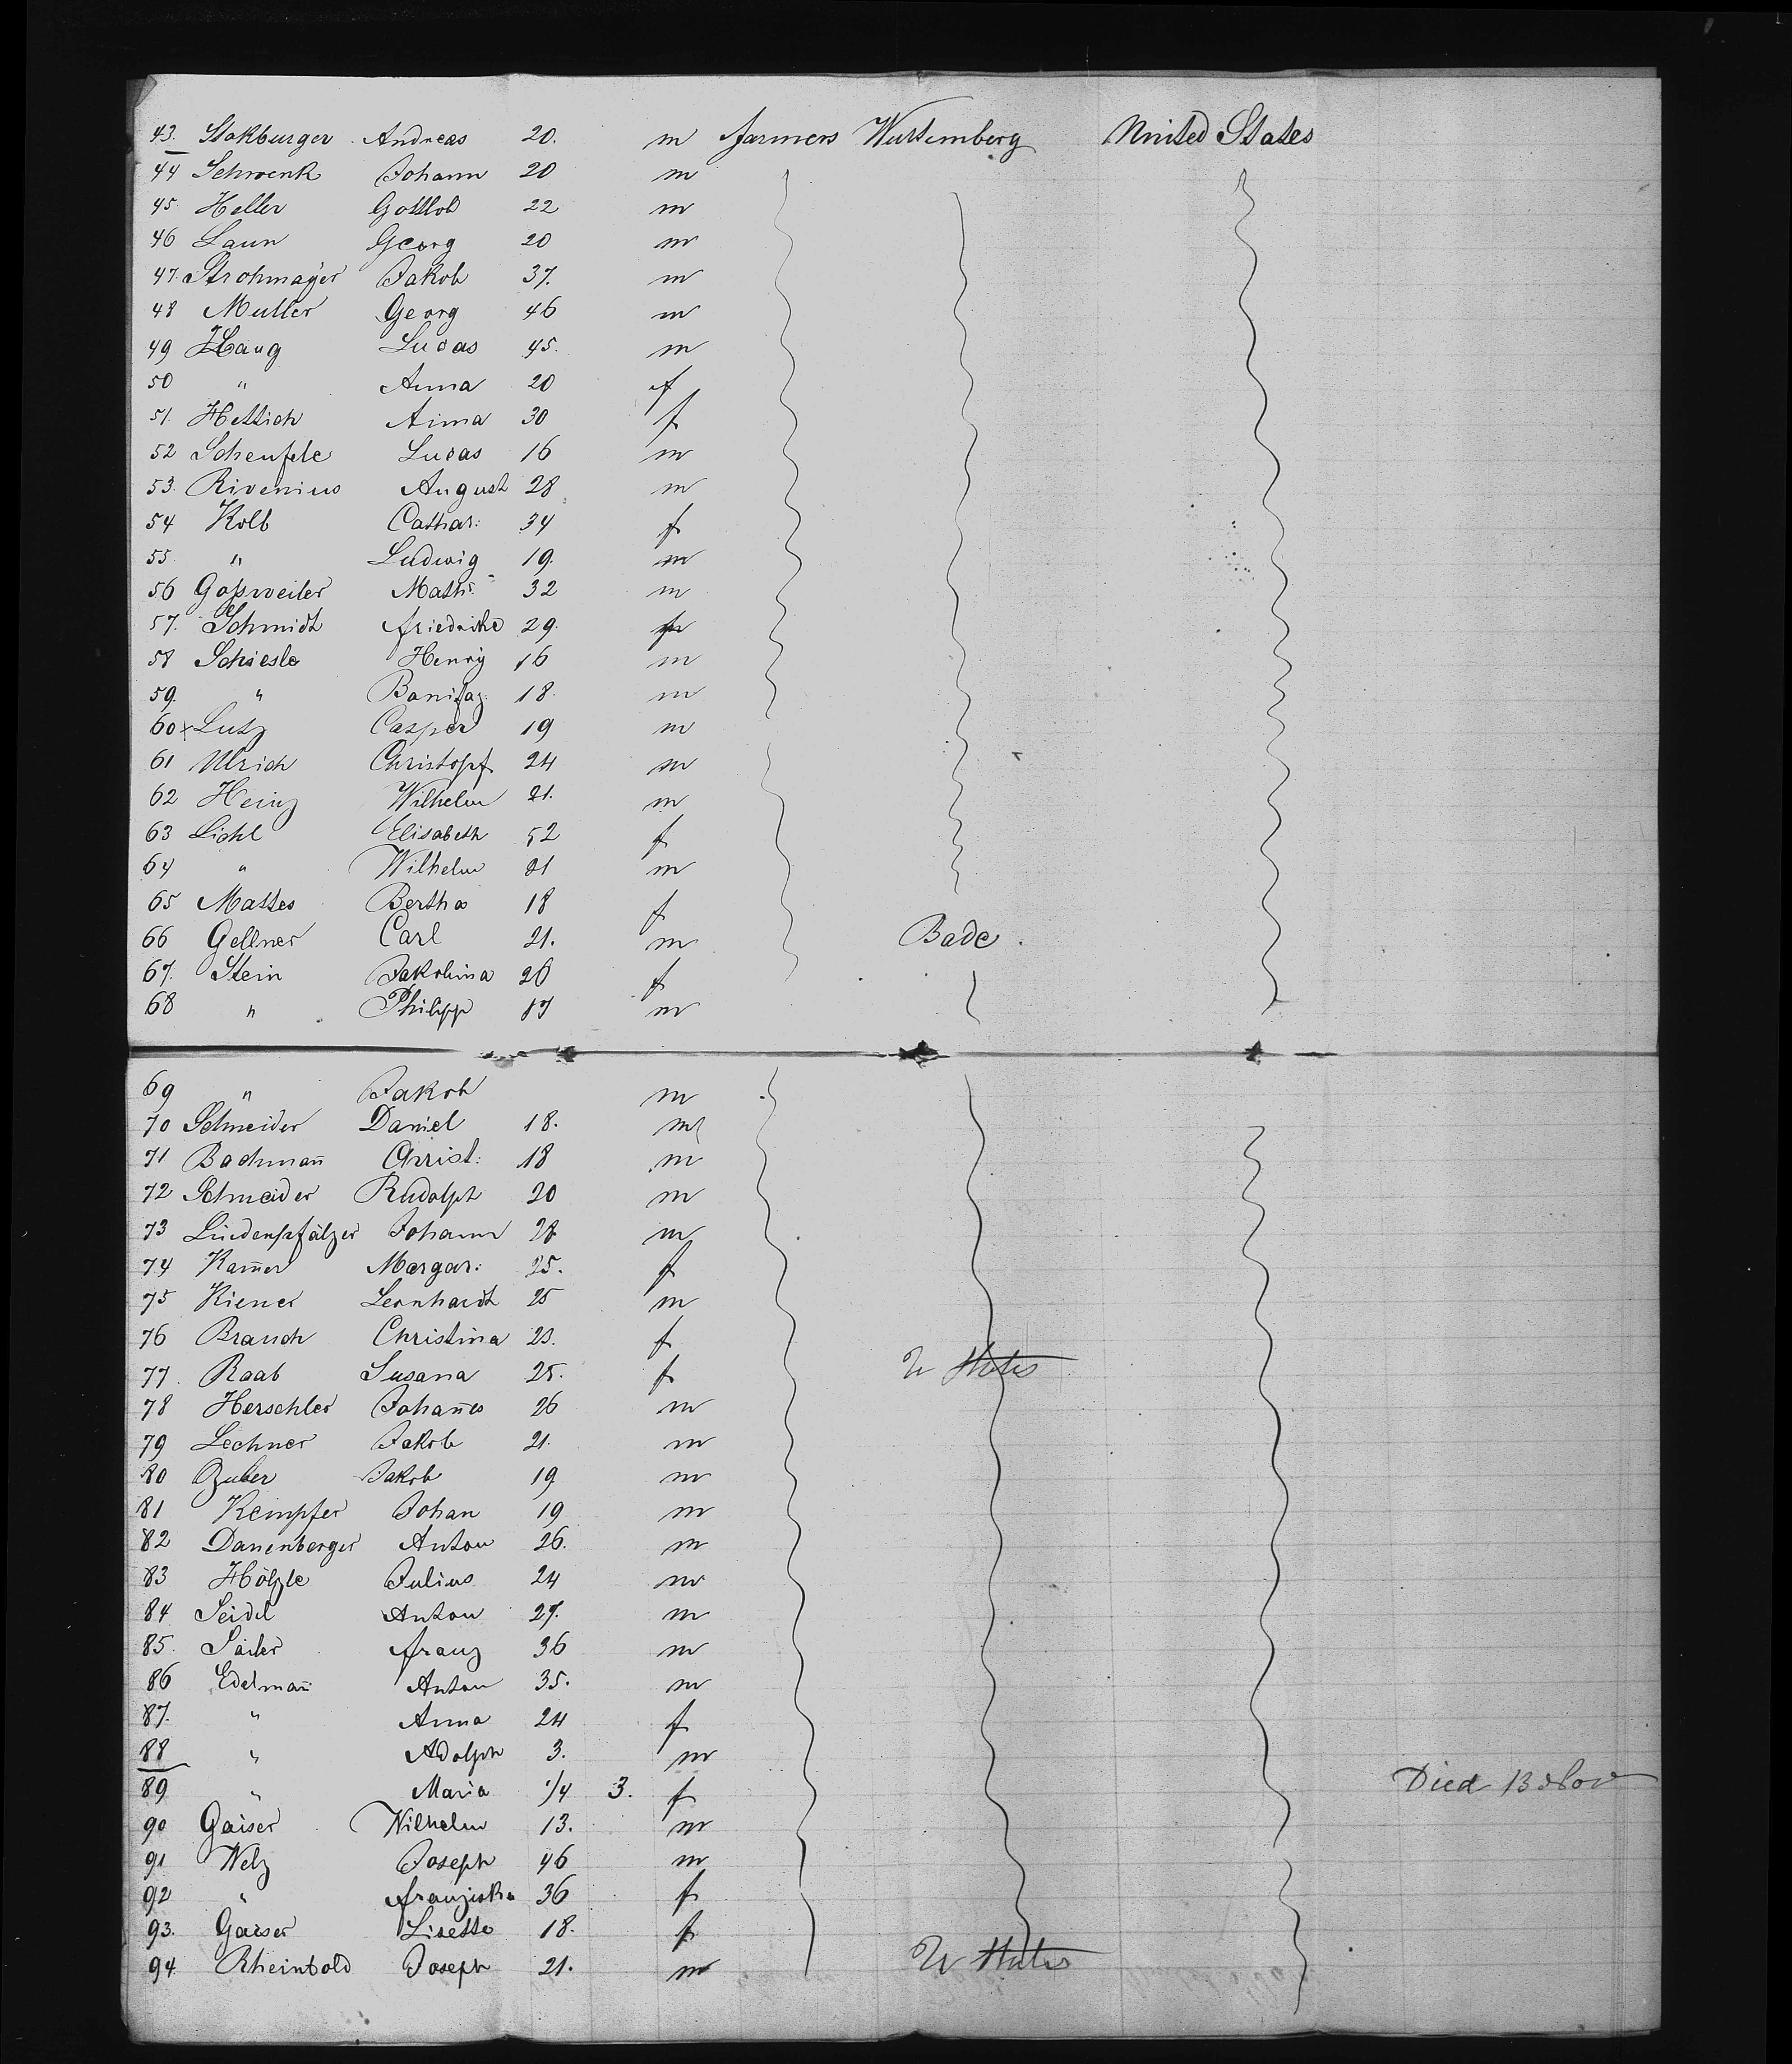 43. Stokburger Andreas 20. m farmers Wurtemberg United States
44 Schwenk Johann 20 m
45. Heller Gottlob 22 m
46 Laun Georg 20 m
47. Strohmayer Jakob 37. m
48 Muller Georg 46 m
49 Haug Lucas 45. m
50 " Anna 20 f
51. Hettich Anna 30 f
52 Scheufele Lucas 16 m
53. Rivenius August 28 m
54 Kolb Cathar: 34 f
55. " Ludwig 19. m
56 Goßweiler Math: 32 m
57. Schmidt friedrike 29. f
58 Schiesle Henry 16 m
59. " Bonifaz 18. m
60 x Lutz Casper 19 m
61 Ulrich Christopf 24 m
62 Heinz Wilhelm 21. m
63 Lichl Elisabeth 52 f
64 " Wilhelm 21 m
65 Mattes Bertha 18 f
66 Gellner Carl 21. m Bade.
67. Stein Jakobina 20 f
68 " Philipp 17 m
69 " Jakob m
70 Schneider Daniel 18. m
71 Bachmañ Christ: 18 m
72 Schneider Rudolph 20 m
73 Lindenpfälzer Johann 28 m
74 Kam̄er Margar: 25. f
75 Kiener Leonhardt 25 m
76 Brauch Christina 23. f
77. Raab Susana 25. f U States
78 Herschler Johañes 26 m
79 Lechner Jakob 21. m
80 Zuber Jakob 19 m
81 Kempfer Johan 19 m
82 Danenberger Anton 26. m
83 Hölzle Julius 24 m
84 Seidel Anton 27. m
85. Sailer franz 36 m
86 Edelmañ Anton 35. m
87. " Anna 24 f
88 " Adolph 3. m
89 " Maria 1/4 3. f Died 13 Nov
90 Gaiser Wilhelm 13. m
91 Welz Joseph 46 m
92 " franziska 36 f
93. Gaiser Lisette 18. f
94 Rheinbold Joseph 21. m U States